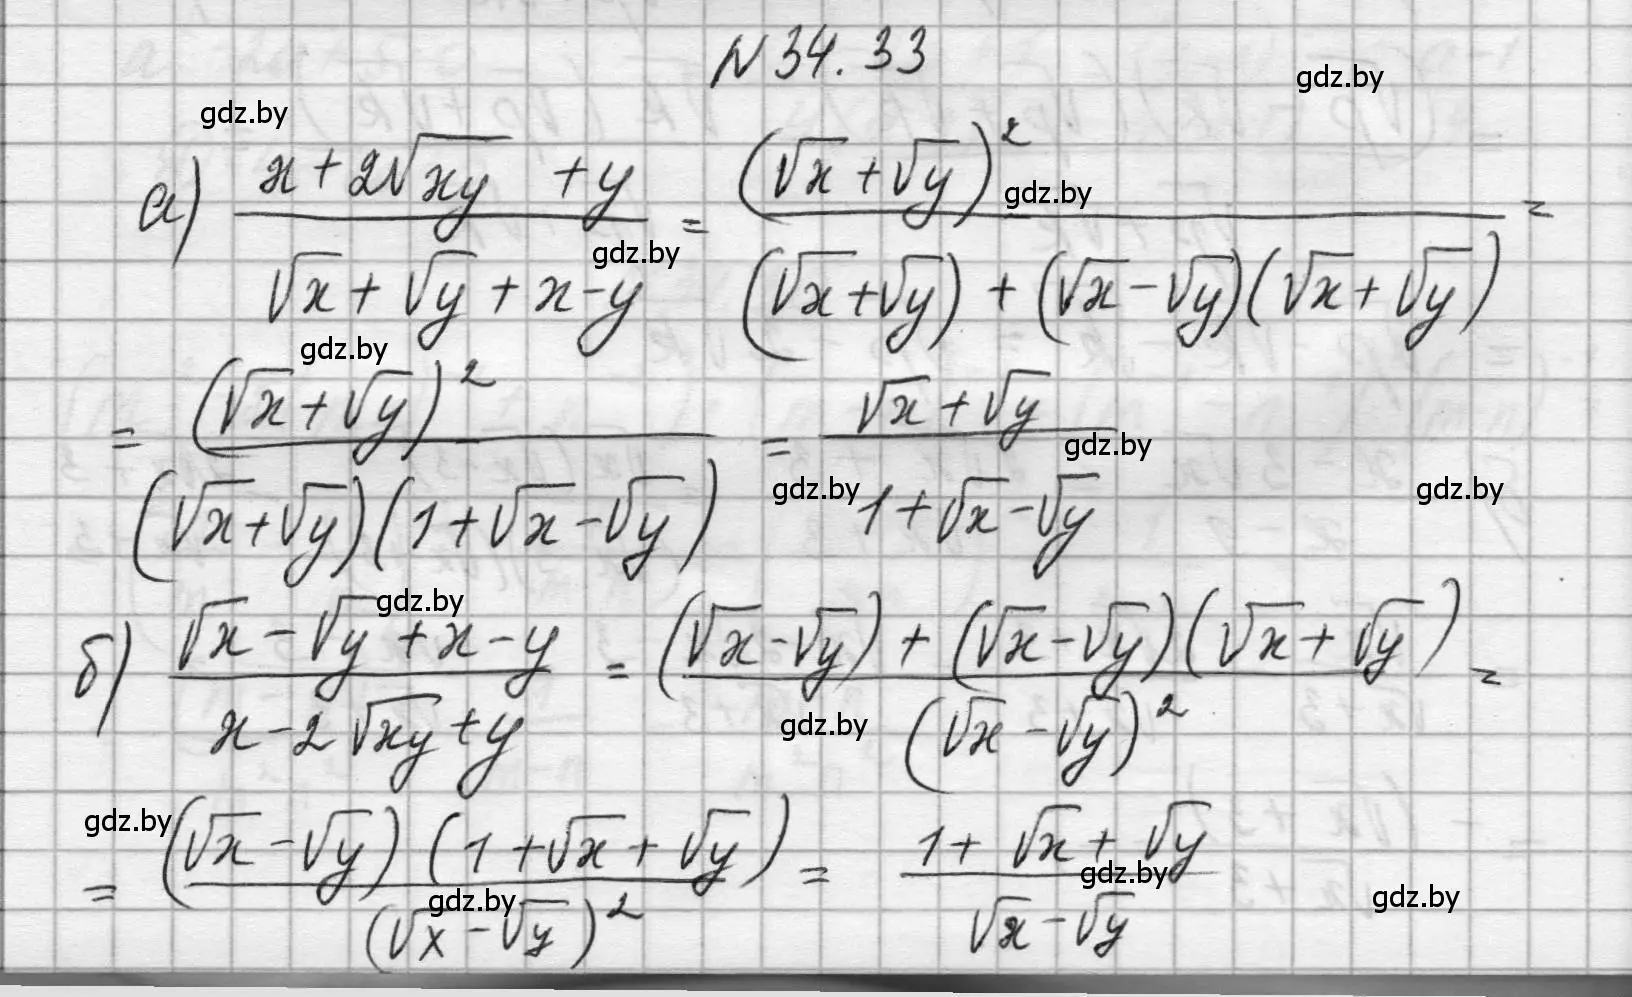 N 34.33
gdz.by
gdz.by
а) (x + 2√(xy) + y)/(√x + √y + x - y) = (√x + √y)²/((√x + √y) + (√x - √y)(√x + √y)) =
gdz.by
gdz.by
gdz.by
= (√x + √y)²/((√x + √y)(1 + √x - √y)) = (√x + √y)/(1 + √x - √y)
gdz.by
gdz.by
gdz.by
gdz.by
б) (√x - √y + x - y)/(x - 2√(xy) + y) = ((√x - √y) + (√x - √y)(√x + √y))/(√x - √y)² =
gdz.by
gdz.by
= ((√x - √y)(1 + √x + √y))/(√x - √y)² = (1 + √x + √y)/(√x - √y)
gdz.by
gdz.by
gdz.by